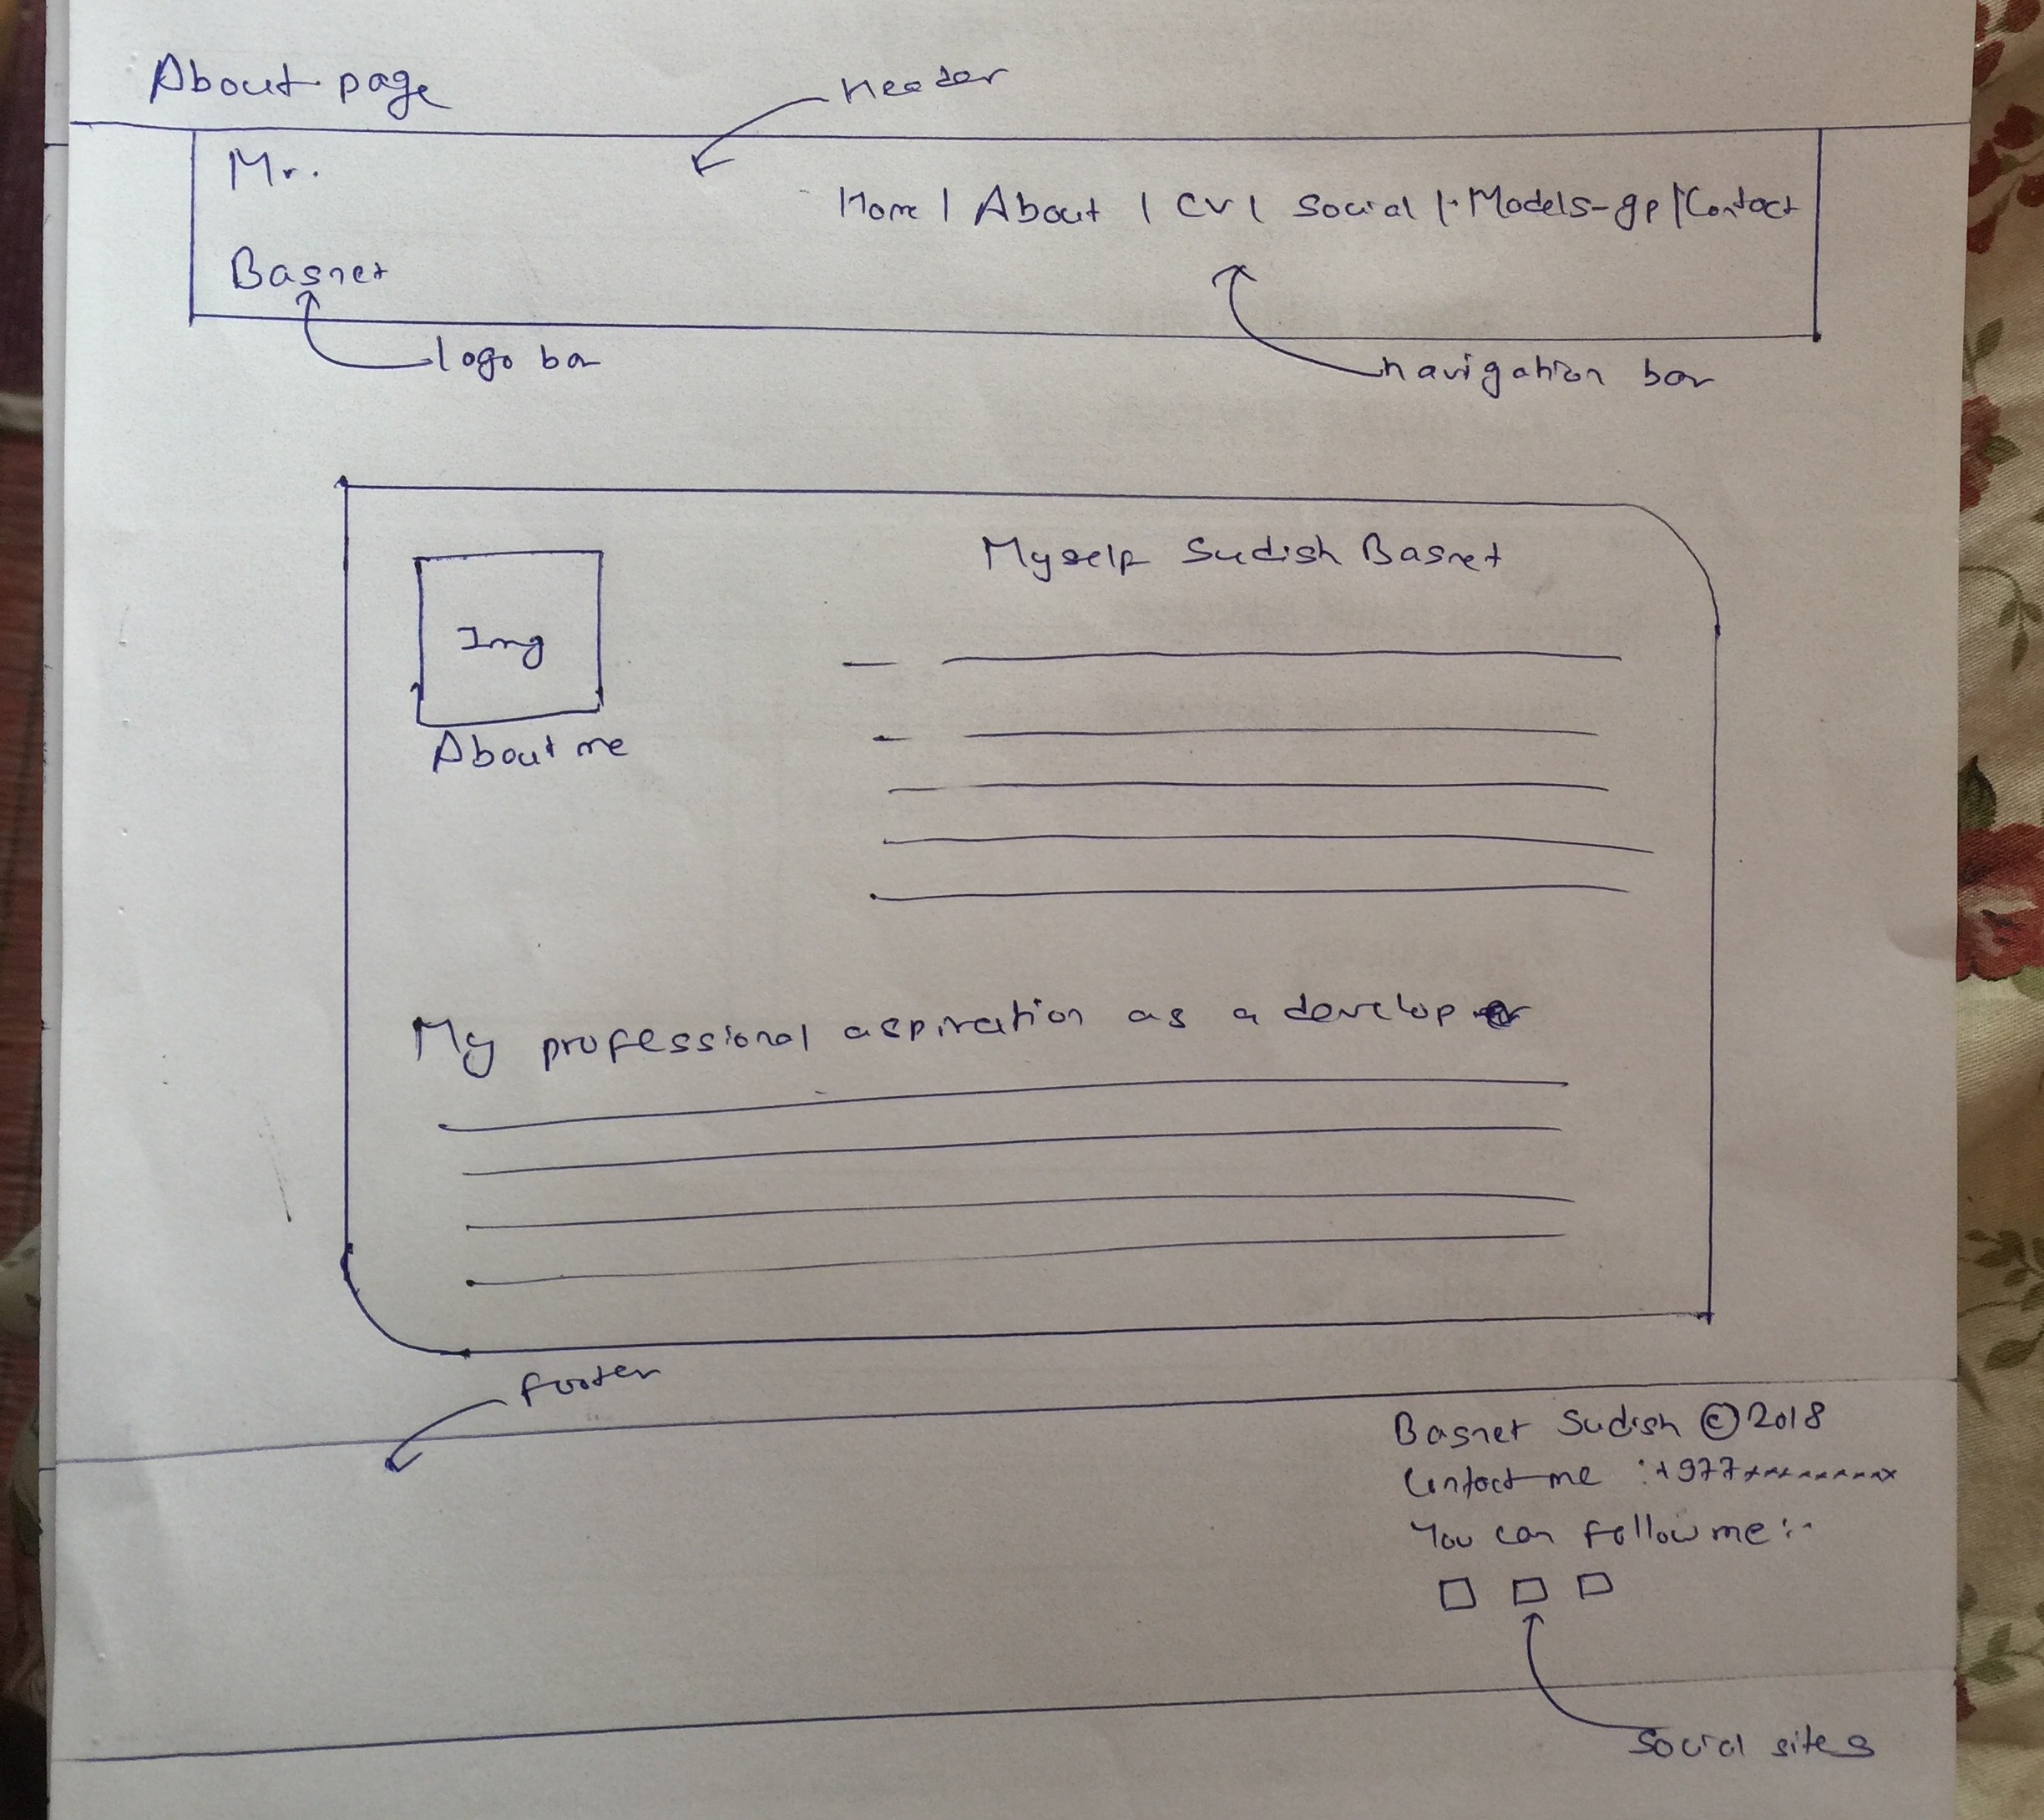 About page
Header
Mr.
Home | About | CV | Social | Models-gp | Contact
Basnet
logo bar
navigation bar
Myself Sudish Basnet
Img
About me
My professional aspiration as a developer
footer
Basnet Sudish © 2018
Contact me : +977xxxxxxxxxx
You can follow me :-
Social sites